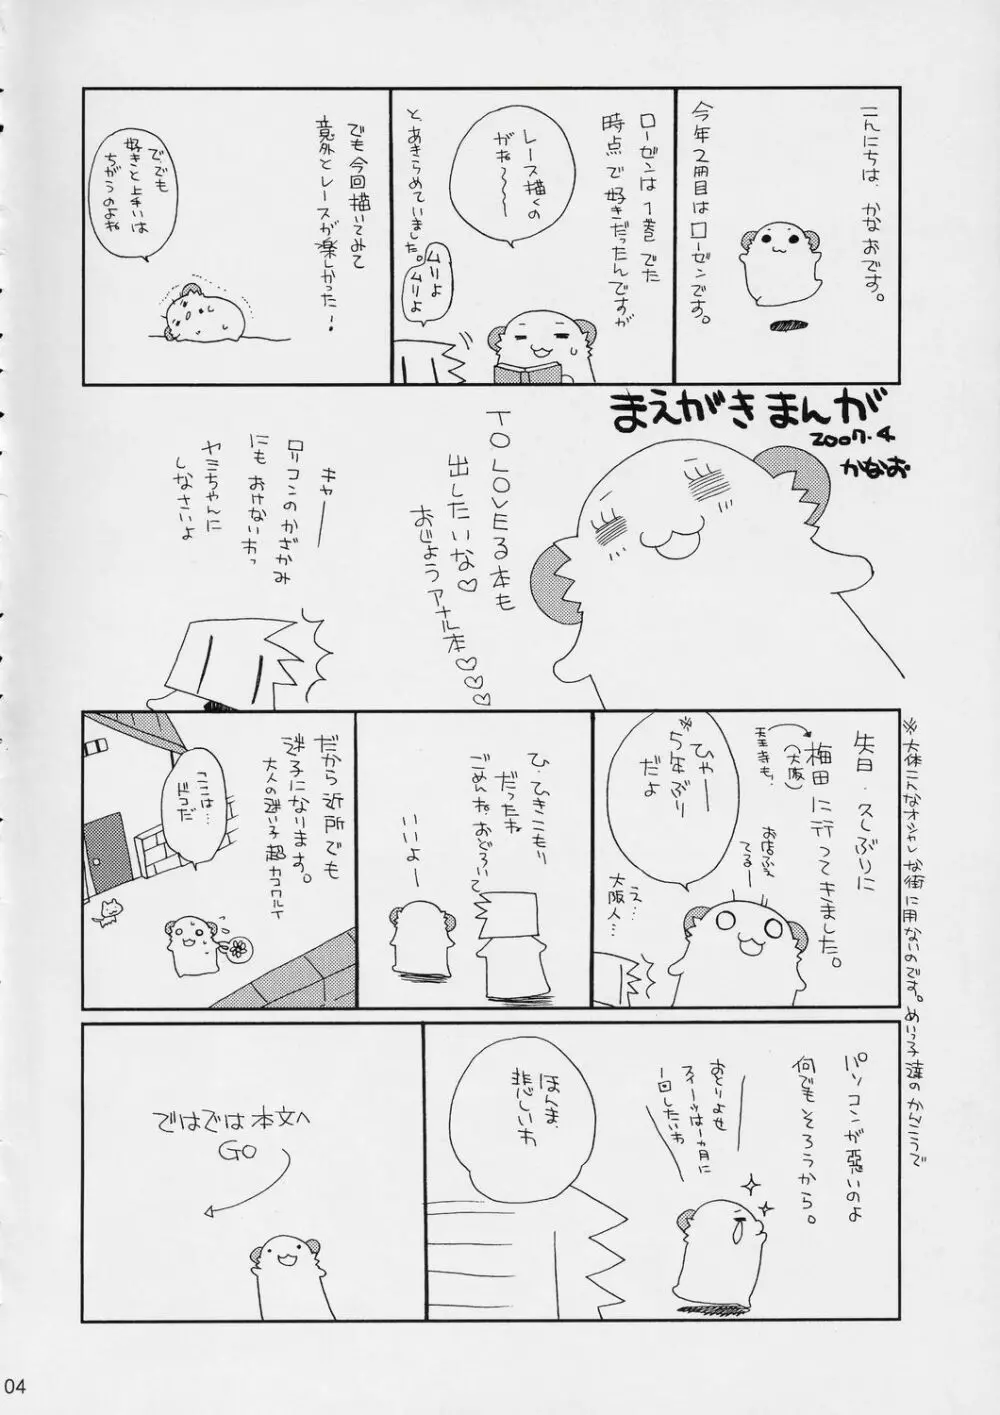 まえがきまんが
2007.4
かなお
こんにちは、かなおです。
今年2冊目はローゼンです。
ローゼンは1巻でた
時点で好きだったんですが
レース描くの
がね〜〜〜
と、あきらめていました。
ムリよ
ムリよ
でも今回描いてみて
意外とレースが楽しかった！
で、でも
好きと上手いは
ちがうのよね
TO LOVEる本も
出したいな♡
おじょうアナル本♡♡♡
キャーー
ロリコンのかざかみ
にもおけないわっ
ヤミちゃんに
しなさいよ
先日、久しぶりに
梅田に行ってきました。
(大阪)
天王寺も。
お店ふえ
てるー
ひゃーー
※5年ぶり
だよ
え…
大阪人…
※大体こんなオシャレな街に用ないのです。めいっ子達のかんこうで
ひ、ひきこもり
だったね
ごめんね、おどろいて
いいよー
だから近所でも
迷子になります。
大人の迷い子超カコワルイ
ここは…
ドコだ
パソコンが悪いのよ
何でもそろうから。
おとりよせ
スイーツは一ヵ月に
一回したいわ
ほんま、
悲しいわ
ではでは本文へ
GO
04